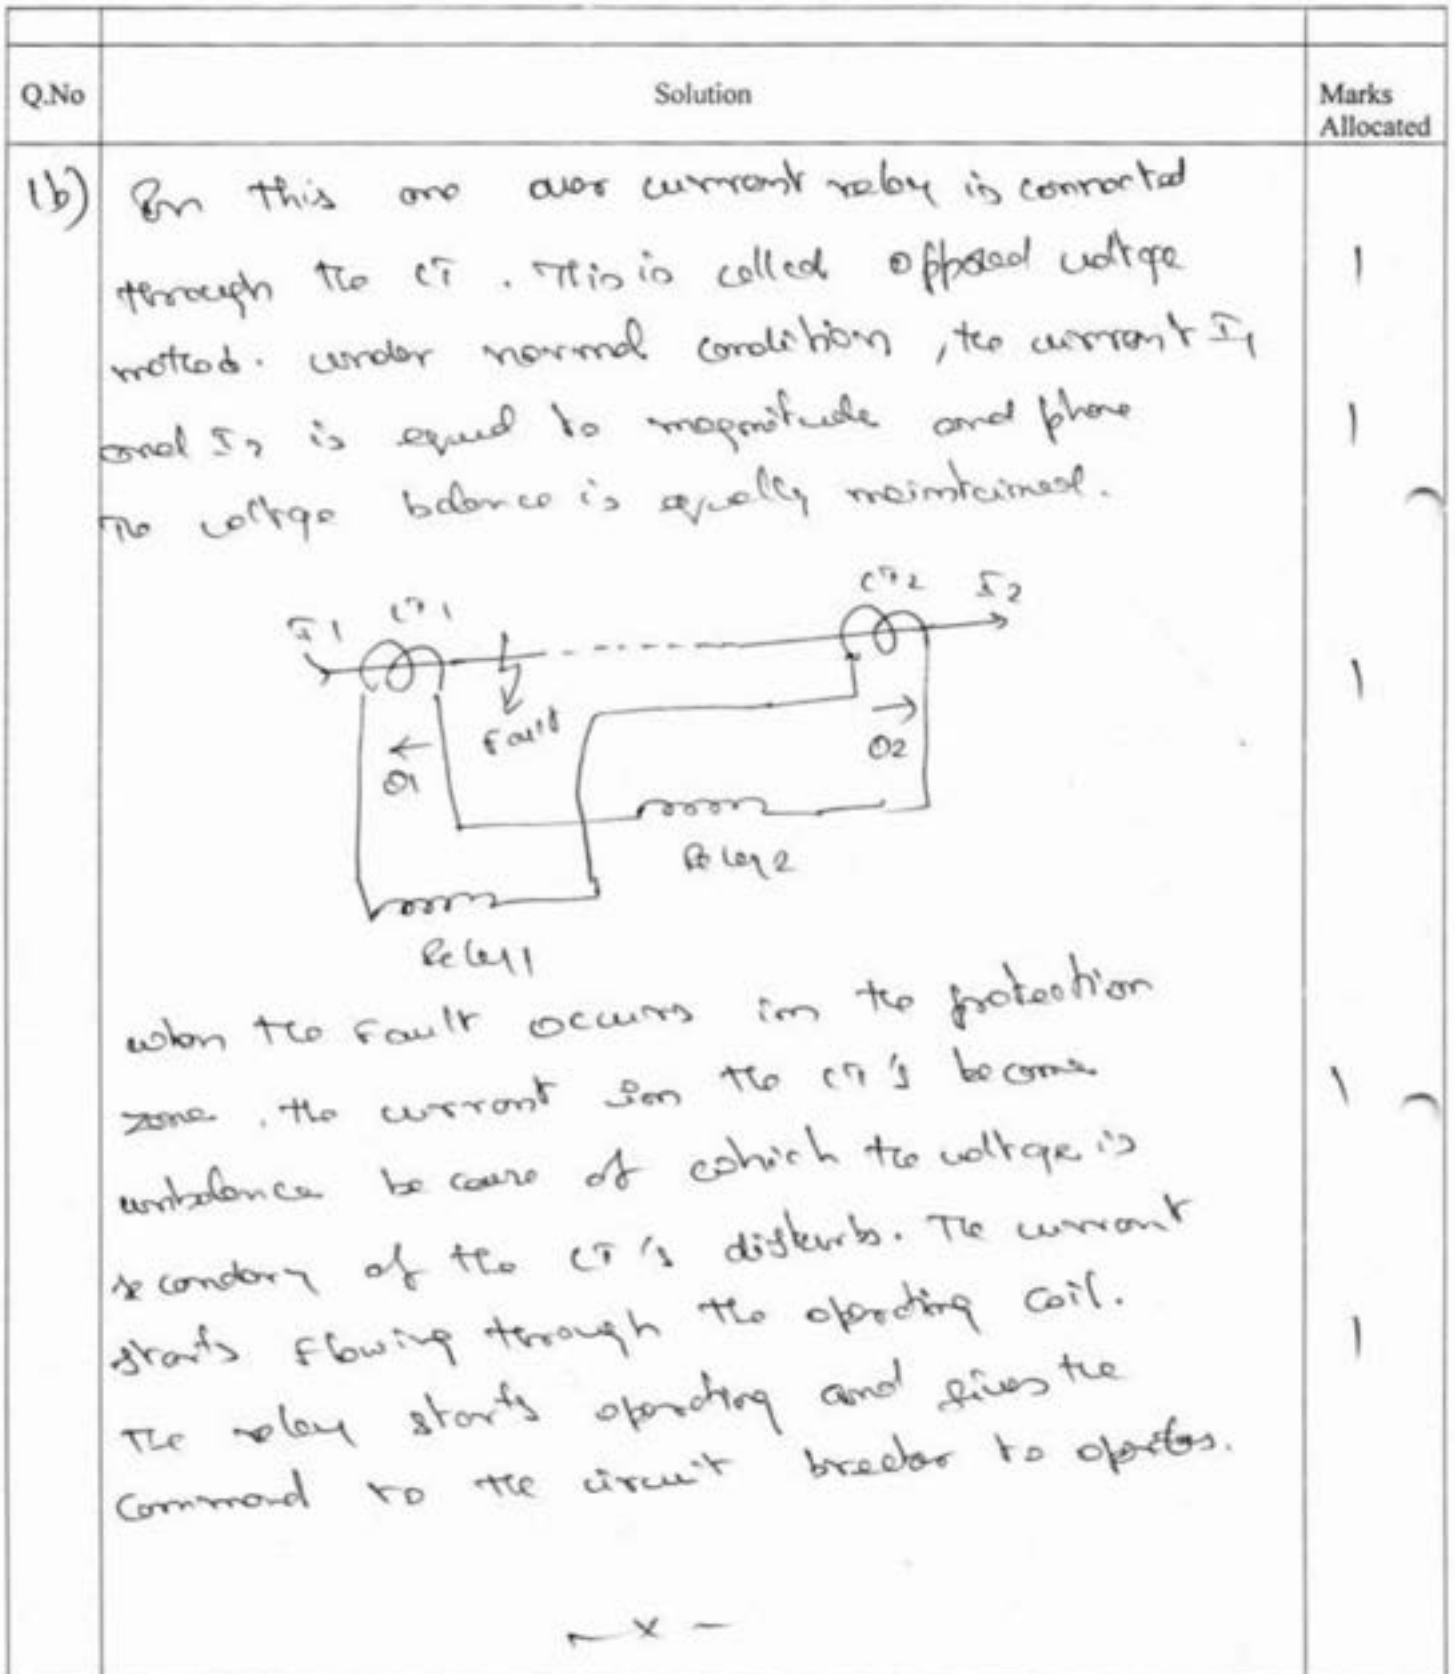 Q.No Solution Marks Allocated
1b) In this one over current relay is connected
through the CT. This is called opposed voltage 1
method. under normal condition, the current I1
and I2 is equal to magnitude and phase 1
The voltage balance is equally maintained.
I1 CT1 CT2 I2
Fault 1
O1 O2
Relay 2
Relay 1
when the fault occurs in the protection
zone, the current in the CT's become 1
unbalance because of which the voltage is
secondary of the CT's disturb. The current
starts flowing through the operating coil. 1
The relay starts operating and gives the
command to the circuit breaker to operates.
— x —